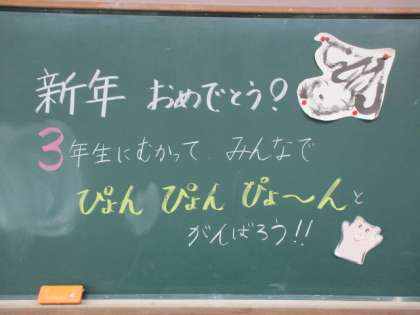 新年 おめでとう?
3年生にむかって みんなで
ぴょん ぴょん ぴょ～んと
がんばろう!!